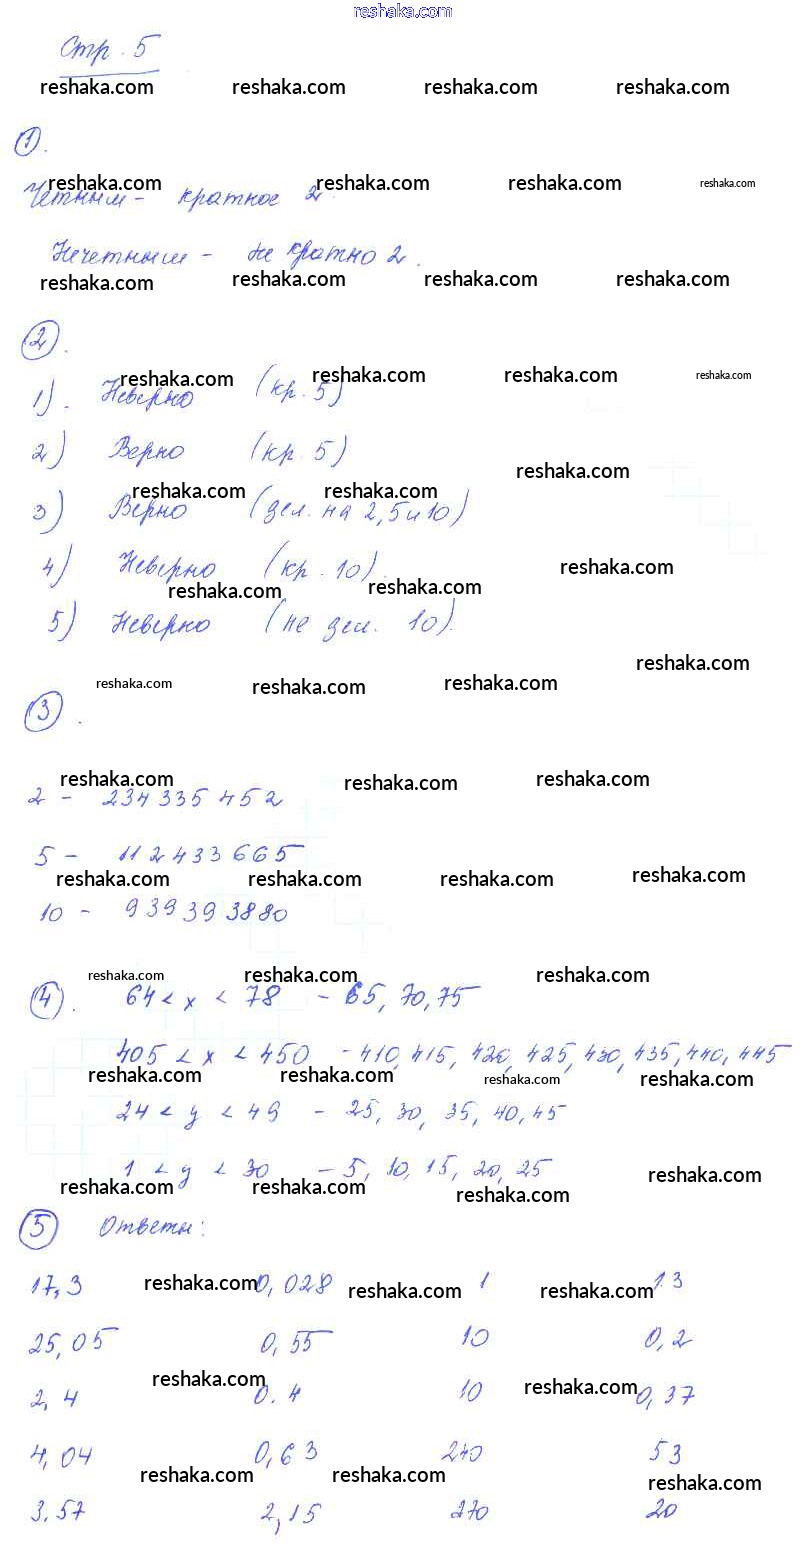 reshaka.com
Стр. 5
reshaka.com reshaka.com reshaka.com reshaka.com
1.
reshaka.com reshaka.com reshaka.com reshaka.com
Четным - кратное 2.
Нечетным - не кратно 2.
reshaka.com reshaka.com reshaka.com reshaka.com
2.
reshaka.com reshaka.com reshaka.com reshaka.com
1). Неверно (кр. 5)
2) Верно (кр. 5)
reshaka.com
reshaka.com reshaka.com
3) Верно (дел. на 2, 5 и 10)
4) Неверно (кр. 10).
reshaka.com
reshaka.com reshaka.com
5) Неверно (не дел. 10).
reshaka.com
reshaka.com reshaka.com reshaka.com
3.
reshaka.com reshaka.com reshaka.com
2 - 234 335 452
5 - 112 433 665
reshaka.com reshaka.com reshaka.com reshaka.com
10 - 939393880
reshaka.com reshaka.com reshaka.com
4. 64 < x < 78 - 65, 70, 75
405 < x < 450 - 410, 415, 420, 425, 430, 435, 440, 445
reshaka.com reshaka.com reshaka.com reshaka.com
24 < y < 49 - 25, 30, 35, 40, 45
1 < y < 30 - 5, 10, 15, 20, 25
reshaka.com reshaka.com reshaka.com reshaka.com
5 Ответы:
reshaka.com reshaka.com reshaka.com
17,3 0,028 1 1.3
25,05 0,55 10 0,2
reshaka.com reshaka.com
2,4 0.4 10 0,37
4,04 0,63 240 53
reshaka.com reshaka.com reshaka.com
3.57 2,15 270 20